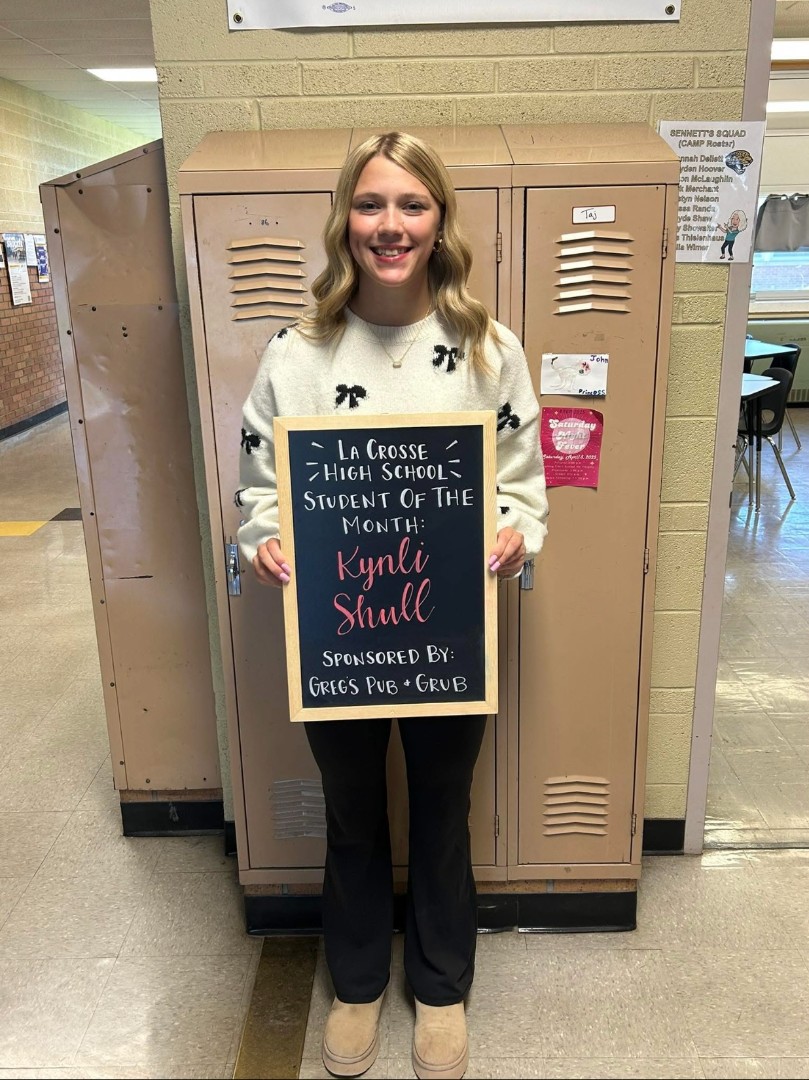 LA CROSSE
HIGH SCHOOL
STUDENT OF THE
MONTH:
Kynli
Shull
SPONSORED BY:
GREG'S PUB + GRUB
SENNETT'S SQUAD
(CAMP Roster)
nnah Dellett
yden Hoover
on McLaughlin
k Merchant
styn Nelson
essa Rands
yde Shaw
y Showalter
s Thielenhaus
lla Wimer
Taj
John
Princess
Saturday
Night
Fever
Saturday, April 5, 2025